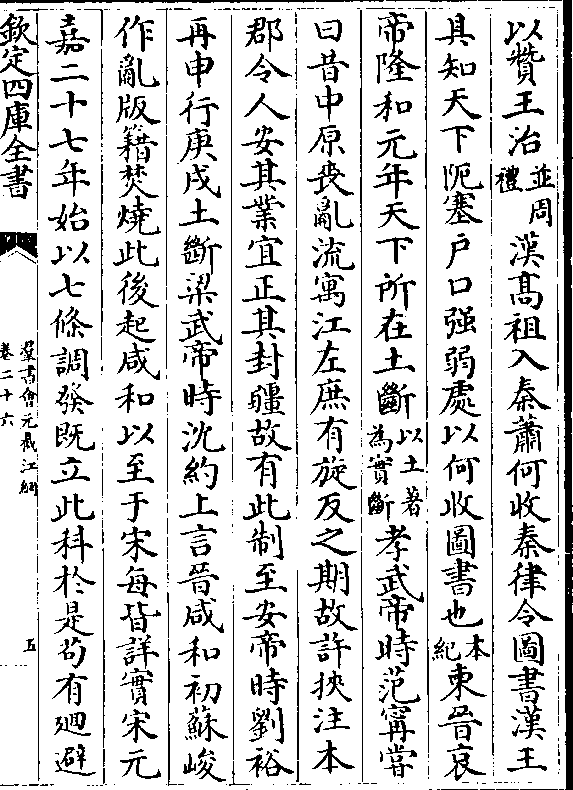 以贊王治並周禮漢髙祖入秦蕭何收秦律令圖書漢王
具知天下阨塞戸口强弱處以何收圖書也本紀東晉哀
帝隆和元年天下所在土斷以土著為實斷孝武帝時范寗嘗
曰昔中原喪亂流寓江左庶有旋反之期故許挾注本
郡令人安其業宜正其封疆故有此制至安帝時劉裕
再申行庚戌土斷梁武帝時沈約上言晉咸和初蘇峻
作亂版籍焚燒此後起咸和以至于宋每皆詳實宋元
嘉二十七年始以七條調發既立此科於是茍有廻避
欽定四庫全書
羣書會元截江網
卷二十六
五